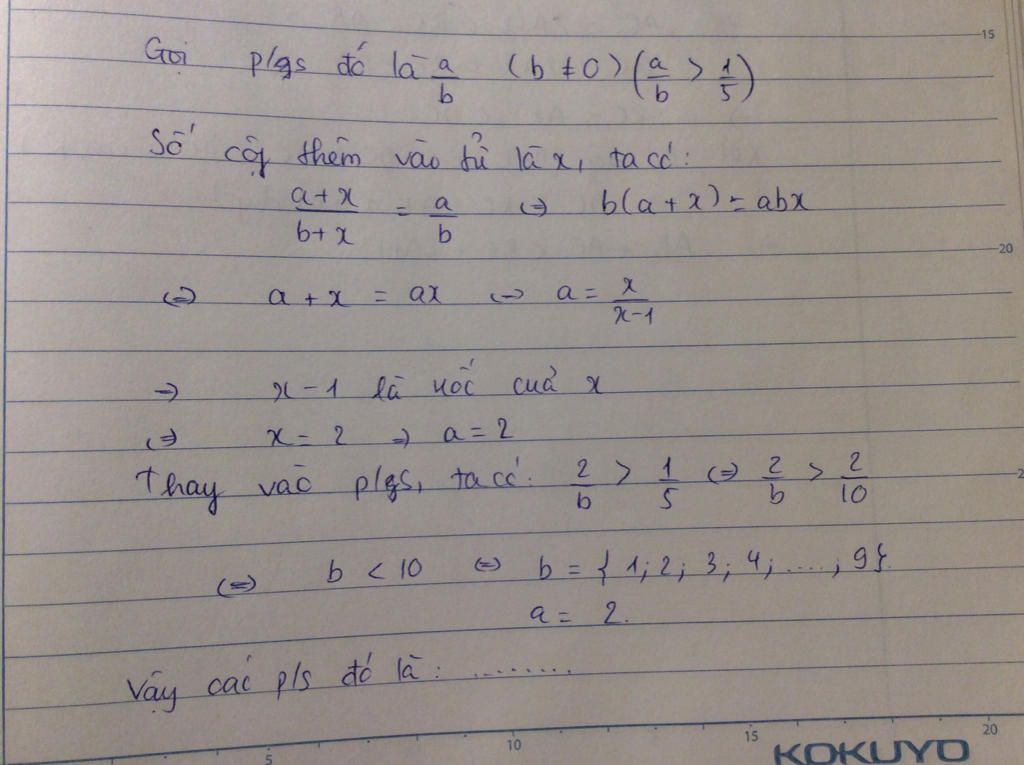 15
Gọi p/gs đó là a/b (b ≠ 0) (a/b > 1/5)
Số cộg thêm vào tử là x, ta có:
(a+x)/(b+x) = a/b ⇔ b(a+x) = abx
20
⇔ a + x = ax ⇔ a = x/(x-1)
→ x - 1 là ước của x
⇔ x = 2 ⇒ a = 2
Thay vào p/gs, ta có: 2/b > 1/5 ⇔ 2/b > 2/10
⇔ b < 10 ⇔ b = {1; 2; 3; 4; ...., 9}.
a = 2.
Vậy các p/s đó là: ........
5 10 15 20
KOKUYO